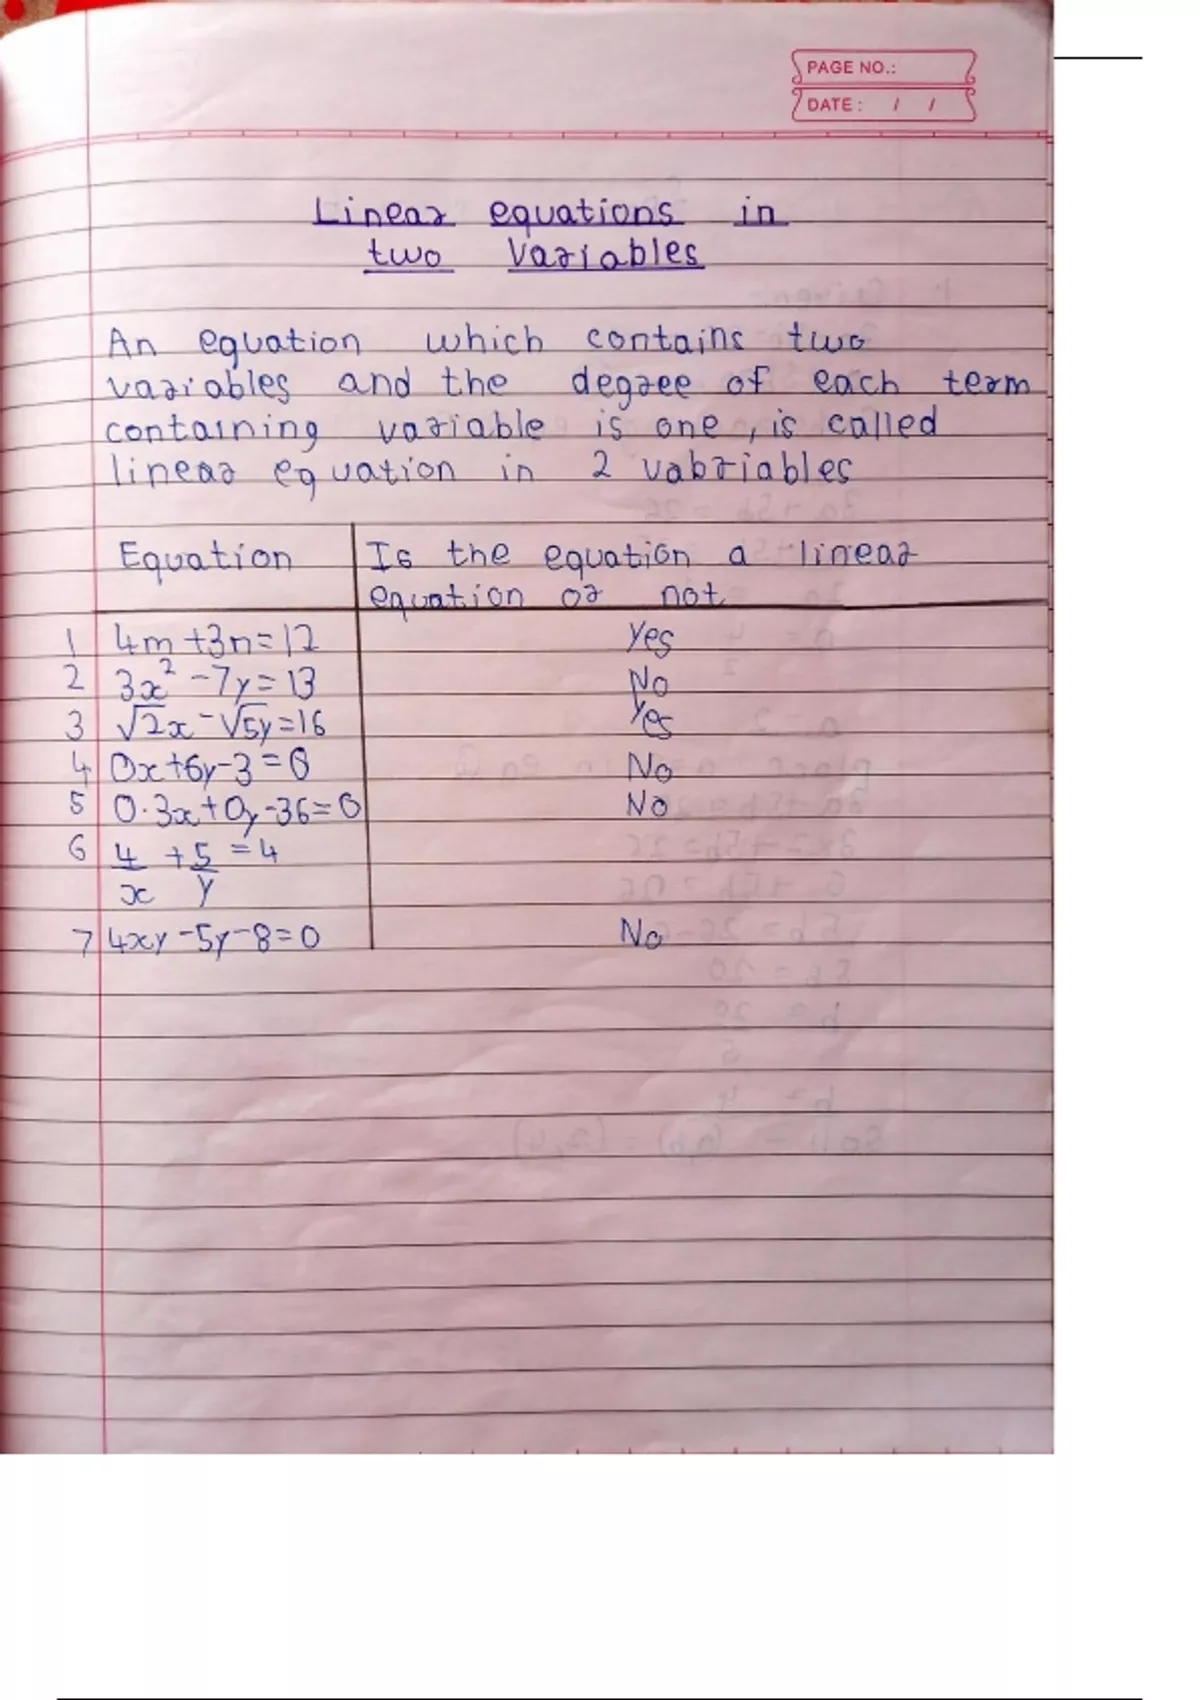 PAGE NO.:
DATE: / /
Linear equations in
two Variables
An equation which contains two
variables and the degree of each term
containing variable is one, is called
linear equation in 2 vabriables
Equation Is the equation a linear
equation or not
1 4m+3n=12 Yes
2 3x²-7y=13 No
3 √2x-√5y=16 Yes
4 0x+6y-3=0 No
5 0.3x+0y-36=0 No
6 4/x + 5/y = 4
7 4xy-5y-8=0 No